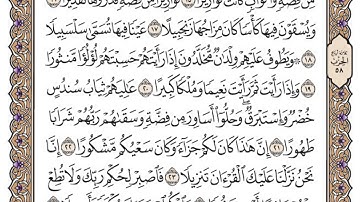 مِّن فِضَّةٍ وَأَكْوَابٍ كَانَتْ قَوَارِيرَا۠ ١٥ قَوَارِيرَا۟ مِن فِضَّةٍ قَدَّرُوهَا تَقْدِيرًا ١٦
وَيُسْقَوْنَ فِيهَا كَأْسًا كَانَ مِزَاجُهَا زَنجَبِيلًا ١٧ عَيْنًا فِيهَا تُسَمَّىٰ سَلْسَبِيلًا
١٨ ۞ وَيَطُوفُ عَلَيْهِمْ وِلْدَٰنٌ مُّخَلَّدُونَ إِذَا رَأَيْتَهُمْ حَسِبْتَهُمْ لُؤْلُؤًا مَّنثُورًا
١٩ وَإِذَا رَأَيْتَ ثَمَّ رَأَيْتَ نَعِيمًا وَمُلْكًا كَبِيرًا ٢٠ عَٰلِيَهُمْ ثِيَابُ سُندُسٍ
خُضْرٌ وَإِسْتَبْرَقٌ وَحُلُّوٓا۟ أَسَاوِرَ مِن فِضَّةٍ وَسَقَىٰهُمْ رَبُّهُمْ شَرَابًا
طَهُورًا ٢١ إِنَّ هَٰذَا كَانَ لَكُمْ جَزَآءً وَكَانَ سَعْيُكُم مَّشْكُورًا ٢٢
نَحْنُ نَزَّلْنَا عَلَيْكَ ٱلْقُرْءَانَ تَنزِيلًا ٢٣ فَٱصْبِرْ لِحُكْمِ رَبِّكَ وَلَا تُطِعْ
الحزب
٥٨